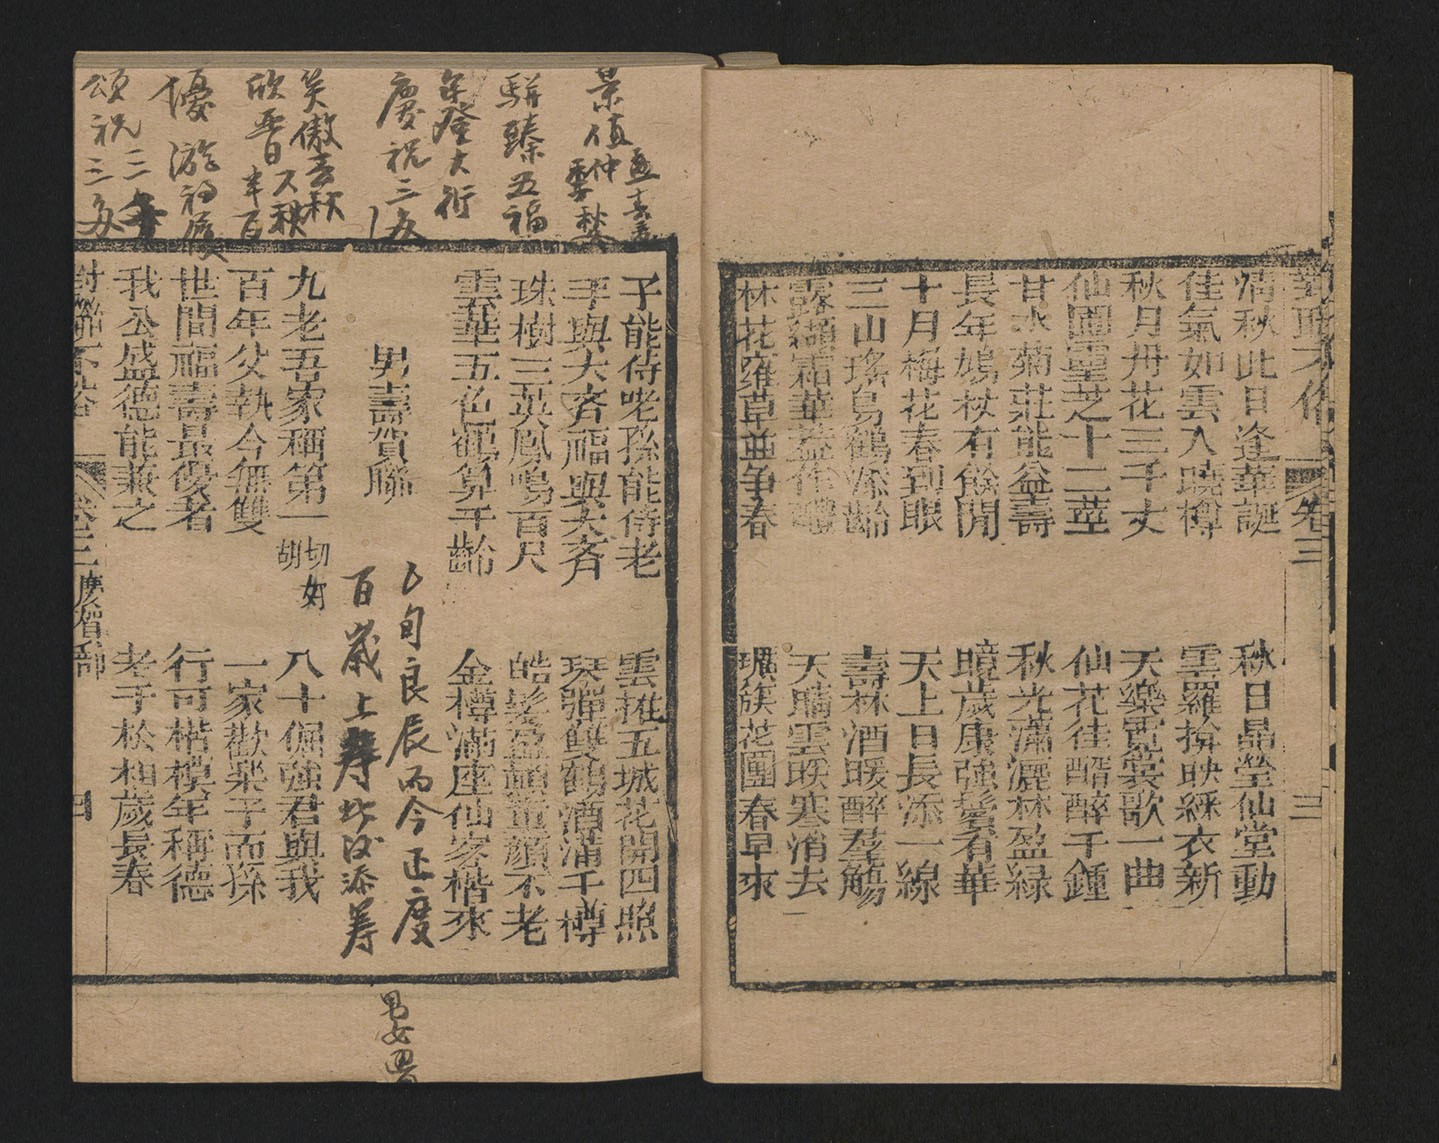 對聯不俗 卷三 三
清秋此日逢華誕
秋日晶瑩仙堂動
佳氣如雲入曉樽
雲羅掩映綵衣新
秋月丹花三千丈
天樂霓裳歌一曲
仙圃靈芝十二莖
仙花佳醑醉千鍾
甘水菊莊能益壽
秋光瀟灑林盈緑
長年鳩杖有餘閒
歲康強鬢者華
十月梅花春到眼
天上日長添一線
三山瑤島鶴添齡
壽林酒暖醉羣觴
露纈霜華益作
天晴雲暖寒消去
林花雍草並争春
簇花團春早來
子能侍老孫能侍老
雲擁五城花開四照
年與天齊福與天齊
琴彈雙鶴酒滿千樽
珠樹三英鳳鳴百尺
皓髮盈顛童顔不老
雲華五色鶴算千齡
金樽滿座仙客偕來
男壽賀聯
旬良辰而今正度
百歲上壽 添筹
九老吾家稱第一 切胡 女
八十倔強君與我
百年父執今無雙
一家歡樂子而孫
世間福壽最優者
行可楷模年稱德
我公盛德能兼之
老于松柏歲長春
對聯不俗 卷三 慶賀部 四
景值仲秋
駢臻五福
年登大衍
慶祝三
笑傲春秋
欣晋半百
優游
頌祝三多
男女